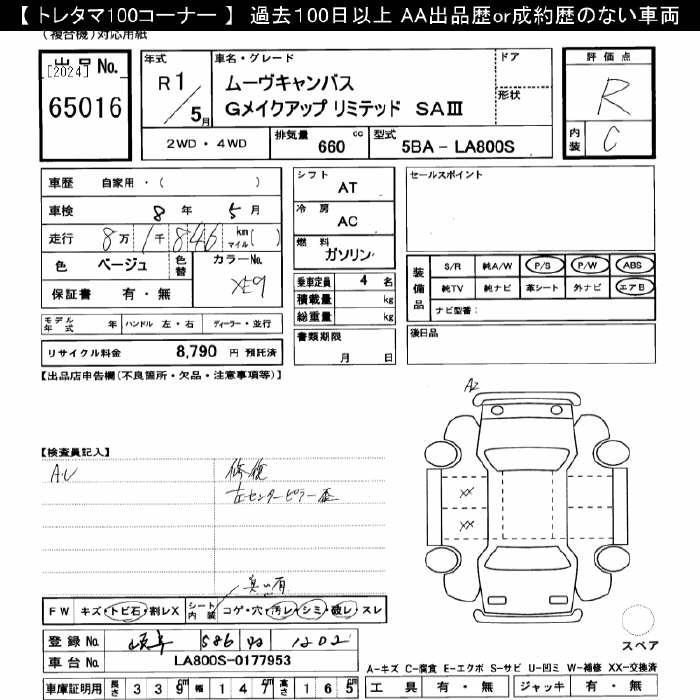 【 トレタマ100コーナー 】 過去100日以上 AA出品歴or成約歴のない車両
(複合機)対応用紙
出品 No.
[2024]
65016
年式
R1/5月
車名・グレード
ムーヴキャンバス
Gメイクアップ リミテッド SAⅢ
ドア
形状
2WD・4WD
排気量 660 cc
型式 5BA - LA800S
評価点
R
内装 C
車歴 自家用・( )
車検 8年 5月
走行 8万 1千 846 km マイル( )
色 ベージュ 色替 カラーNo.
XE9
保証書 有・無
モデル年式 年 ハンドル 左・右 ディーラー・並行
リサイクル料金 8,790 円 預託済
シフト AT
冷房 AC
燃料 ガソリン
乗車定員 4 名
積載量 kg
総重量 kg
書類期限
月 日
セールスポイント
装備品
S/R 純A/W P/S P/W ABS
純TV 純ナビ 革シート 外ナビ エアB
ナビ型番:
後日品
【出品店申告欄(不良箇所・欠品・注意事項等)】
A2
【検査員記入】
AU
修復
左センターピラー歪
XX
XX
臭い有
FW キズ・トビ石・割レX シート内装 コゲ・穴・汚レ・シミ・破レ・スレ
登録 No. 岐阜 586 1202
車台 No. LA800S-0177953
車庫証明用 長さ 339cm 幅 147cm 高さ 165cm
スペア
A-キズ C-腐食 E-エクボ S-サビ U-凹ミ W-補修 XX-交換済
工具 有・無 ジャッキ 有・無